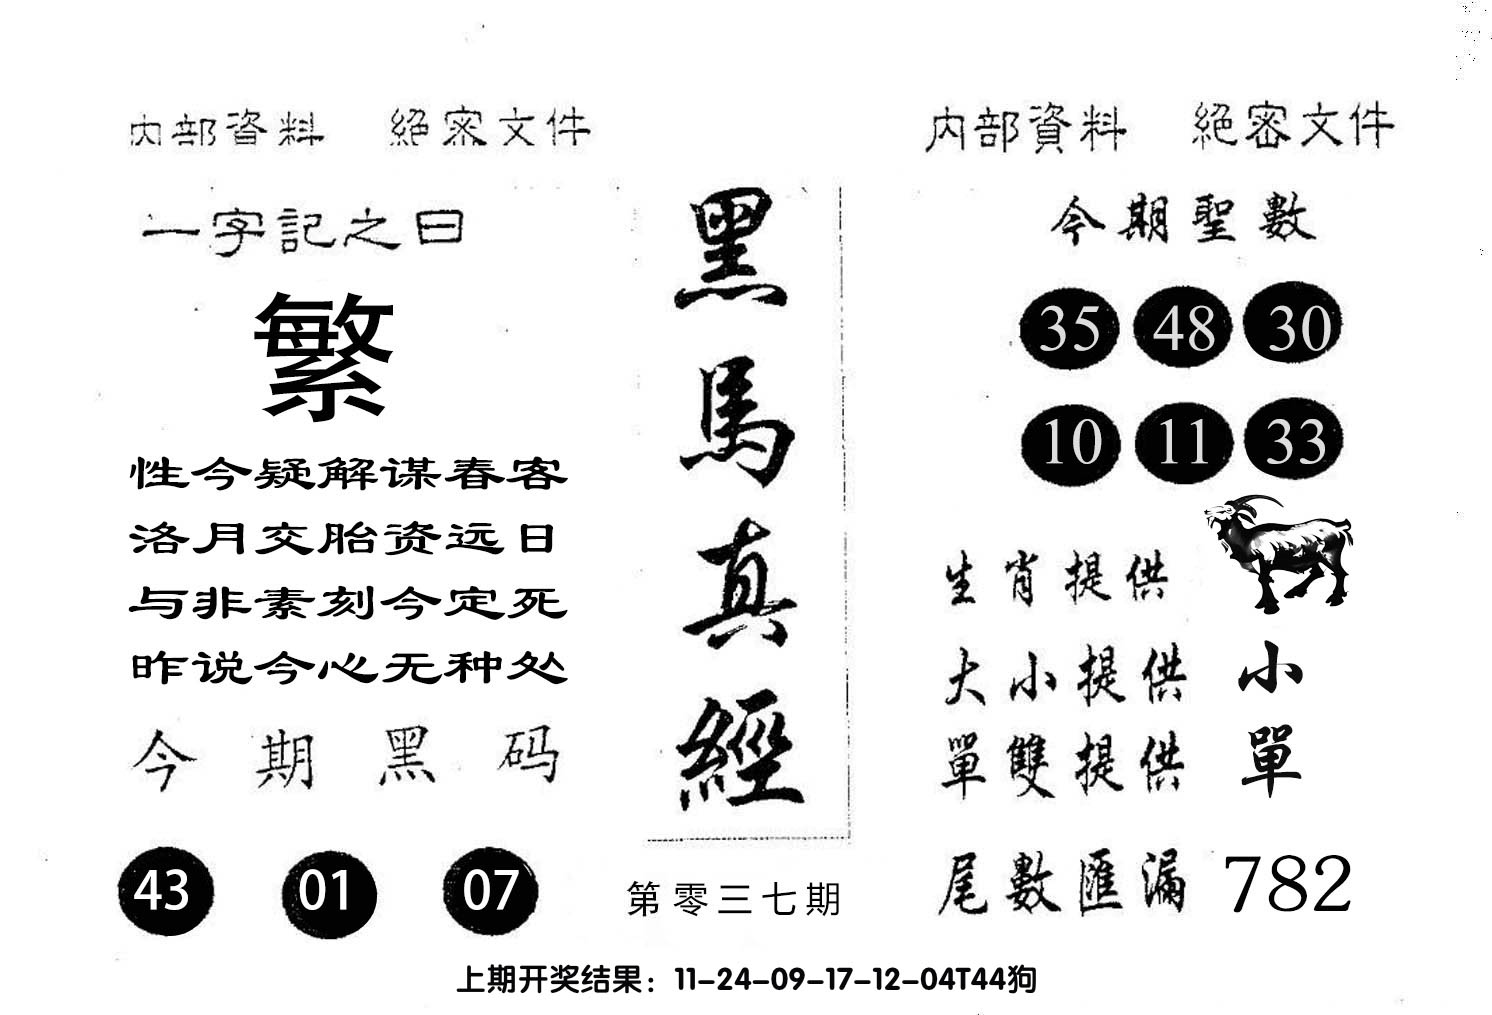 内部資料 絕密文件
一字記之曰
繁
性今疑解谋春客
洛月交胎资远日
与非素刻今定死
昨说今心无种处
今期黑码
43 01 07
黑馬真經
第零三七期
内部資料 絕密文件
今期聖數
35 48 30
10 11 33
生肖提供
大小提供 小
單雙提供 單
尾數匯漏 782
上期开奖结果：11-24-09-17-12-04T44狗